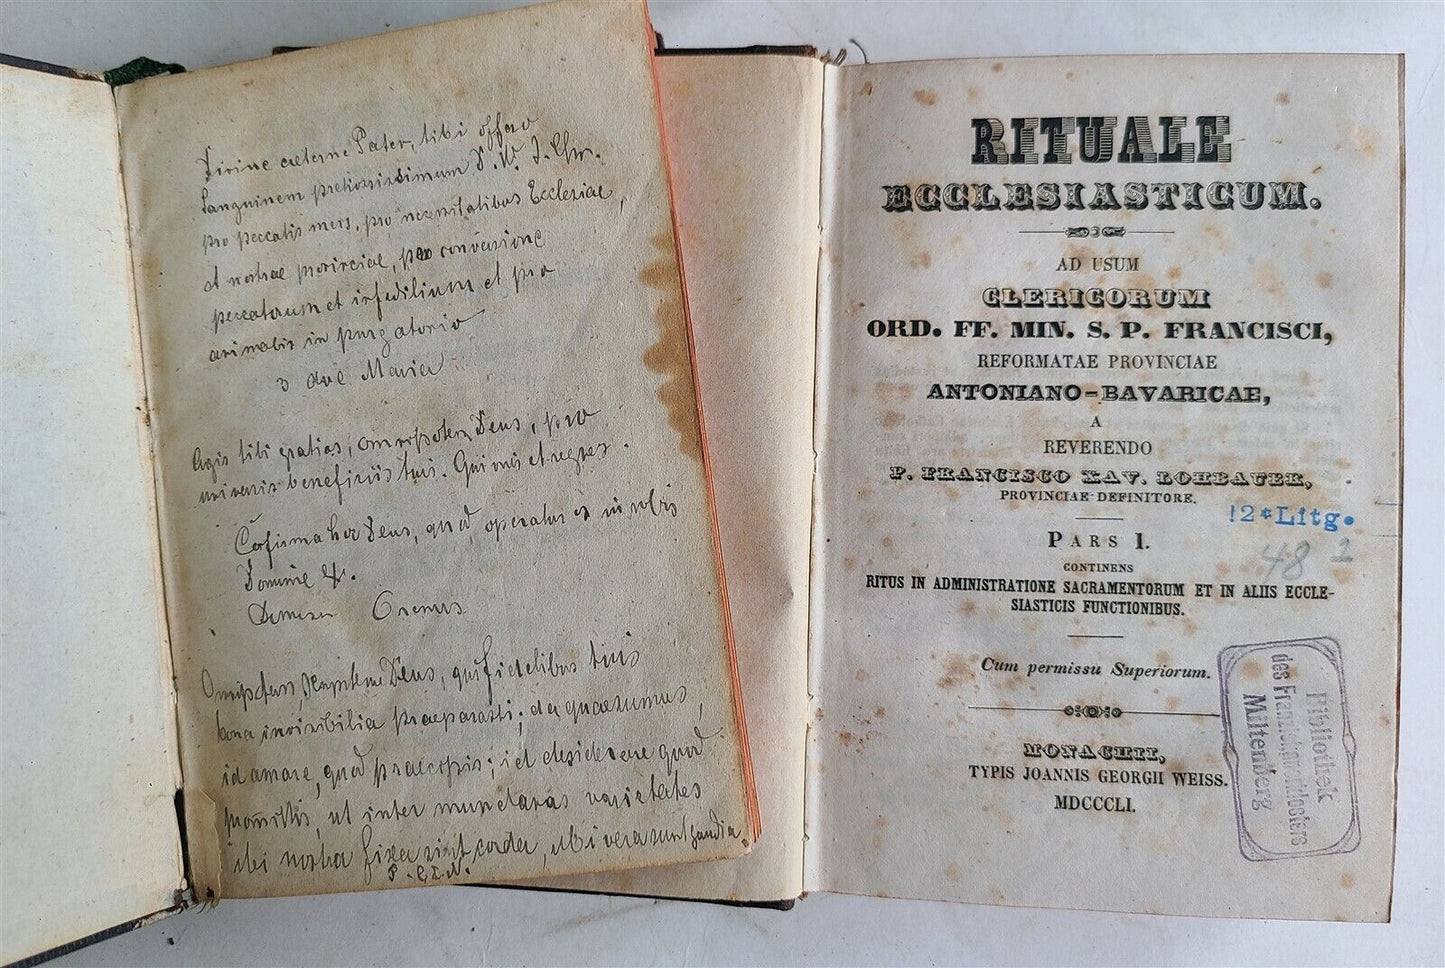 Divine aeterne Pater, tibi offero
Sanguinem pretiosissimum D. N. J. Chr.
pro peccatis meis, pro necessitatibus Ecclesiae,
et nostrae provinciae, pro conversione
peccatorum et infidelium et pro
animabis in purgatorio
3 Ave Maria
Agis tibi gratias, omnipotens Deus, pro
universis beneficiis tuis. Qui vivis et regnas.
Cofirma hoc Deus, quod operatus es in nobis
Domine
Oremus
Deus, qui fidelibus tuis
bona invisibilia praeparasti; da quaesumus,
id amare, quod praecipis; id desiderare quod
promittis, ut inter mundanas varietates
ibi nostra fixa sint corda, ubi vera sunt gaudia.
RITUALE
ECCLESIASTICUM.
AD USUM
CLERICORUM
ORD. FF. MIN. S. P. FRANCISCI,
REFORMATAE PROVINCIAE
ANTONIANO-BAVARICAE,
A
REVERENDO
P. FRANCISCO XAV. LOHBAUER,
PROVINCIAE DEFINITORE.
12*Litg.
48 2
PARS I.
CONTINENS
RITUS IN ADMINISTRATIONE SACRAMENTORUM ET IN ALIIS ECCLE-
SIASTICIS FUNCTIONIBUS.
Cum permissu Superiorum.
MONACHII,
TYPIS JOANNIS GEORGII WEISS.
MDCCCLI.
Bibliothek
des Franziskanerklosters
Miltenberg